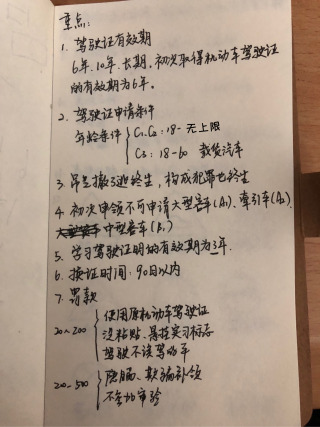 重点:
1. 驾驶证有效期
6年、10年、长期, 初次取得机动车驾驶证
的有效期为6年。
2. 驾驶证申请条件
年龄条件 { C1、C2: 18- 无上限
C3: 18-60 载货汽车
3. 吊后撤3逃终生, 构成犯罪也终生
4. 初次申领不可申请大型客车(A1)、牵引车(A2)、
中型客车(B1)
5. 学习驾驶证明的有效期为3年.
6. 换证时间: 90日以内
7. 罚款
20~200 { 使用原机动车驾驶证
没粘贴、悬挂实习标志
驾驶不该驾的车
20~500 { 隐瞒、欺骗补领
不参加审验